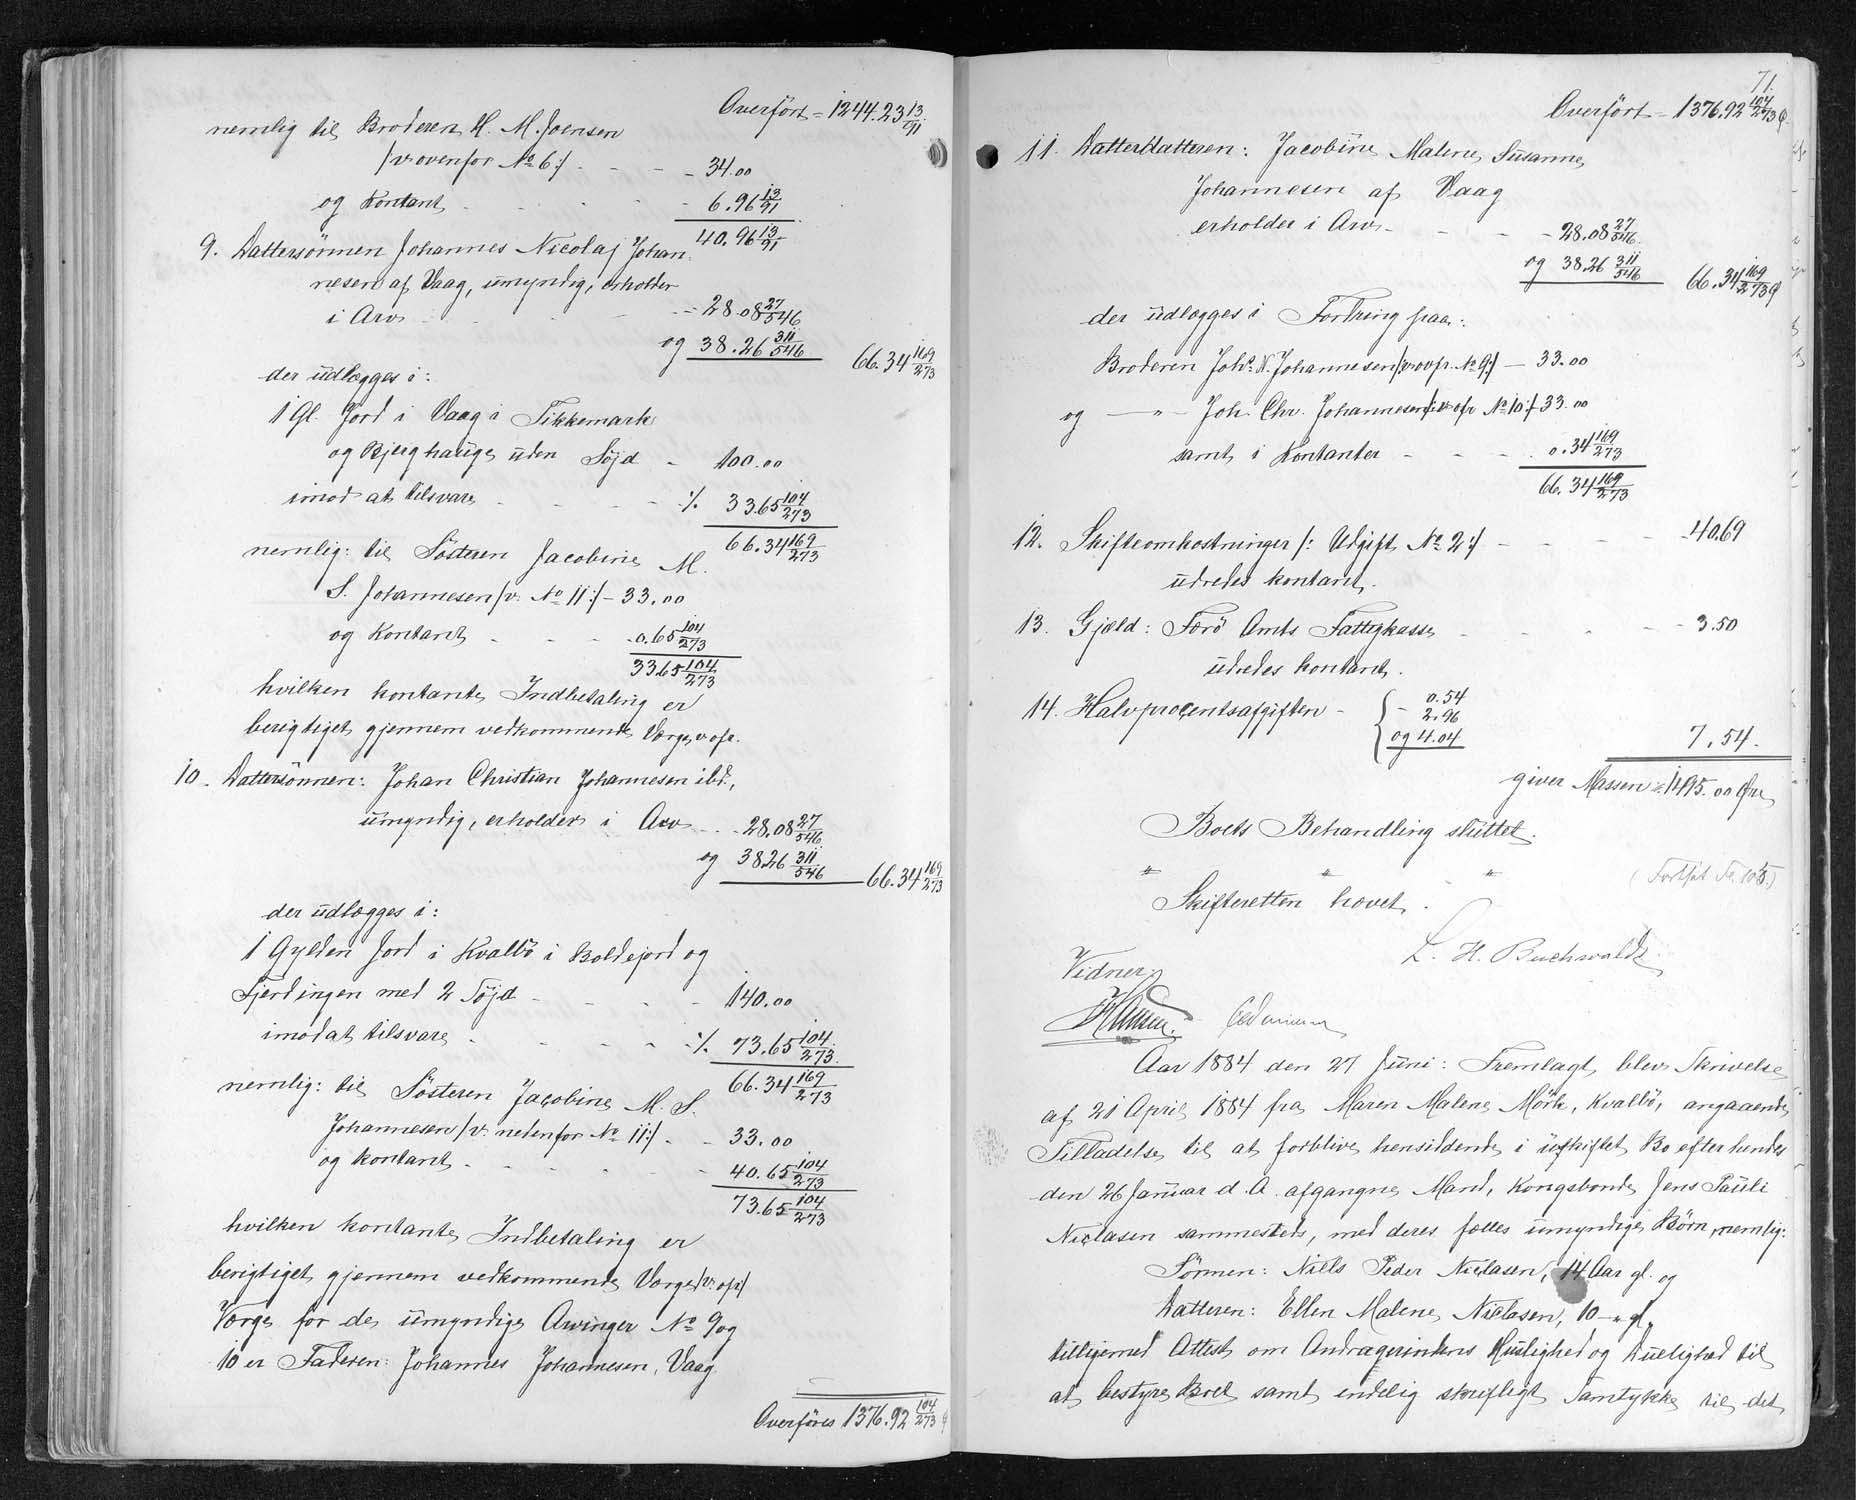 Overført = 1244.23 13/91
nemlig til Broderen H. M. Joensen
/:v: ovenfor No 6:/ - - - 34.00
og Kontant - - - - 6.96 13/91
40.96 13/91
9. Dattersønnen Johannes Nicolaj Johan-
nesen af Vaag, umyndig, erholder
i Arv - - - - 28.08 27/546
og 38.26 311/546 66.34 169/273
der udlægges i:
1 Gl. Jord i Vaag i Tikkemark
og Bjerghauge uden Søjd - 100.00
imod at tilsvare - - - ·/. 33.65 104/273
66.34 169/273
nemlig: til Søsteren Jacobine M.
S. Johannesen /:v: No 11:/ - 33.00
og Kontant - - - 0.65 104/273
33.65 104/273
hvilken kontante Indbetaling er
berigtiget gjennem vedkommende Værge v. ofr.
10. Dattersønnen: Johan Christian Johannesen ibd.,
umyndig, erholder i Arv - - 28.08 27/546
og 38.26 311/546 66.34 169/273
der udlægges i:
1 Gylden Jord i Kvalbø i Boldejord og
Fjerdingen med 2 Søjd - - - 140.00
imod at tilsvare - - - - ·/. 73.65 104/273
66.34 169/273
nemlig: til Søsteren Jacobine M. S.
Johannesen /:v: nedenfor No 11:/ - - 33.00
og kontant - - - - - 40.65 104/273
73.65 104/273
hvilken kontante Indbetaling er
berigtiget gjennem vedkommende Værge /:v: ofr:/
Værge for de umyndige Arvinger No 9 og
10 er Faderen: Johannes Johannesen, Vaag
Overføres 1376.92 104/273
71.
Overført = 1376.92 104/273
11. Datterdatteren: Jacobine Malene Susanne
Johannesen af Vaag
erholder i Arv - - - 28.08 27/546
og 38.26 311/546 66.34 169/273
der udlægges i Fordring paa:
Broderen Johs. N. Johannesen /:v: ovfr. No 9:/ - 33.00
og - " - Joh. Chr. Johannesen /:v: ofr No 10:/ 33.00
samt i Kontanter - - - 0.34 169/273
66.34 169/273
12. Skifteomkostninger /: Udgift No 2:/ - - - - 40.69
udredes kontant.
13. Gjæld: Færø Amts Fattigkasse - - - - 3.50
udredes kontant.
14. Halvprocentsafgiften - - 0.54
2.96
og 4.04
7.54.
giver Massen = 1495.00 Øre
Boets Behandling sluttet.
" " "
(Fortsat Fo. 105.)
Skifteretten hævet.
L. H. Buchwaldt
Vidner
HHansen.
Aar 1884 den 27 Juni: Fremlagt blev Skrivelse
af 21 April 1884 fra Maren Malene Mörk, Kvalbø, angaaende
Tilladelse til at forblive hensiddende i uskiftet Bo efter hendes
den 26 Januar d. A. afgangne Mand, Kongsbonde Jens Pauli
Niclasen sammesteds, med deres fælles umyndige Børn, nemlig:
Sønnen: Niels Peder Niclasen, 14 Aar gl. og
Datteren: Ellen Malene Niclasen, 10 - " gl.,
tilligemed Attest om Andragerindens Huslighed og Duelighed til
at bestyre Boet samt endelig skriftligt Samtykke til det